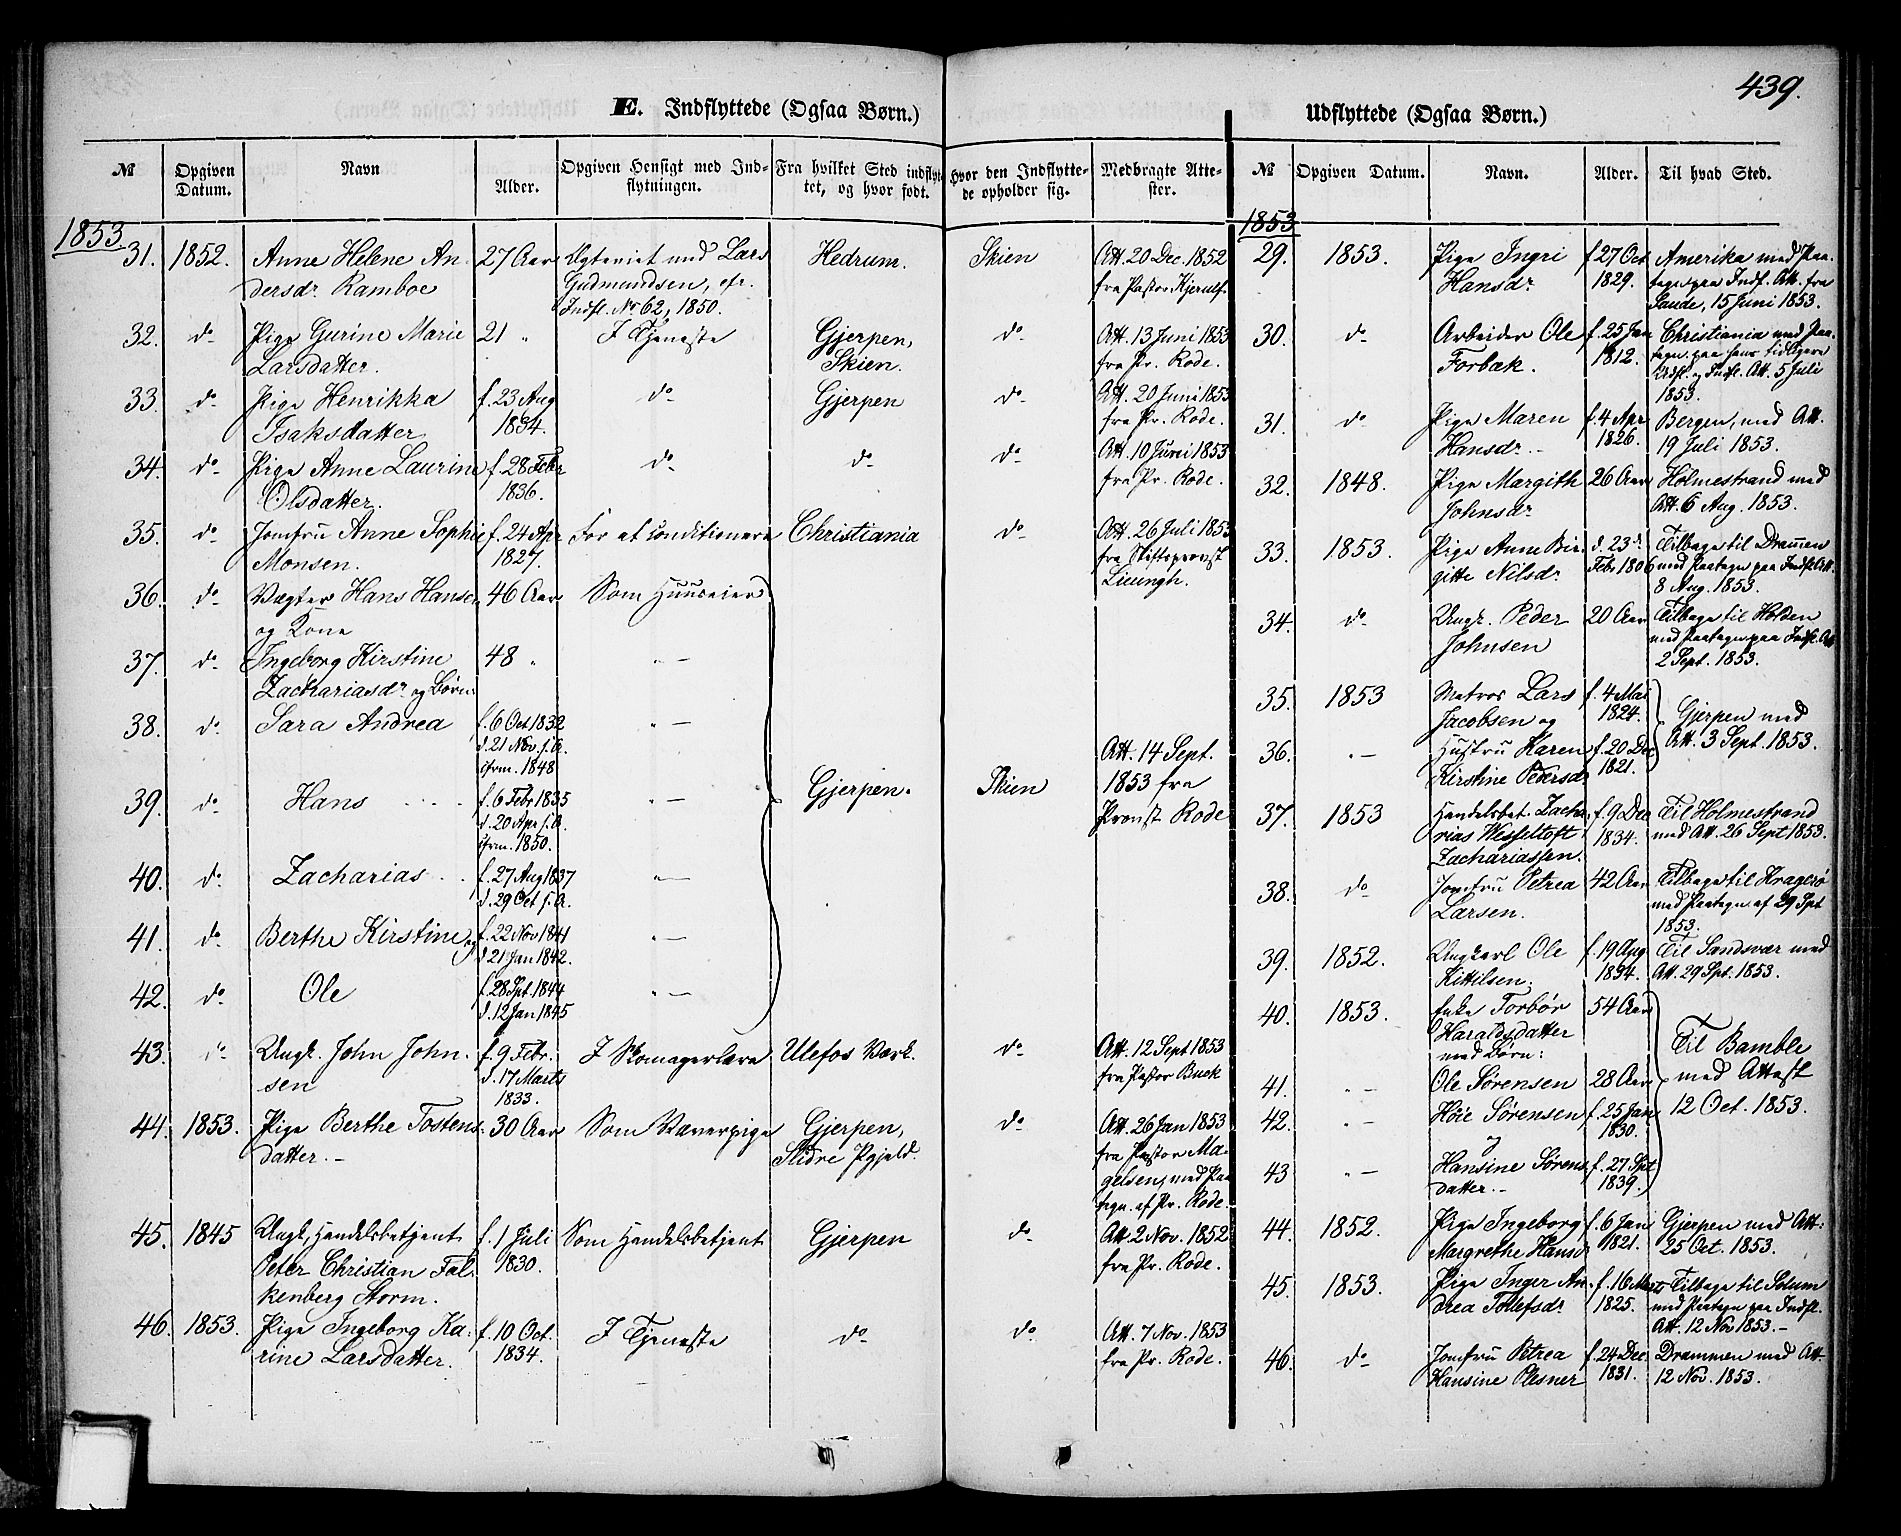 439.
E. Indflyttede (Ogsaa Børn.)
№ | Opgiven Datum. | Navn | Alder. | Opgiven Hensigt med Indflytningen. | Fra hvilket Sted indflyttet, og hvor født. | Hvor den Indflyttede opholder sig. | Medbragte Attester.
1853
31. 1852. Anne Helene An- 27 Aar Ægteviet med Lars Hedrum. Skien Att. 20 Dec. 1852
dersdr Ramboe Gudmundsen, cfr. fra Pastor Kjerulf.
Indfl. No 62, 1850.
32. do Pige Gurine Marie 21 " I Tjeneste Gjerpen, do Att. 13 Juni 1853
Larsdatter. Skien. fra Pr. Rode.
33. do Pige Henrikka f. 23 Aug do Gjerpen do Att. 20 Juni 1853
Isaksdatter 1834. fra Pr. Rode.
34. do Pige Anne Laurine f. 28 Febr do do do Att. 10 Juni 1853
Olsdatter. 1836. fra Pr. Rode.
35. do Jomfru Anne Sophie f. 24 Apr For at conditionere Christiania do Att. 26 Juli 1853
Monsen. 1827. fra Stiftsprovst
36. do Vægter Hans Hansen 46 Aar Som Huuseier
og Kone
37. do Ingeborg Kirstine 48 " " —
Zachariasdr og Børn:
38. do Sara Andrea f. 6 Oct 1832 " —
d. 21 Nov. s. A.
cfrm. 1848 Att. 14 Sept.
39. do Hans f. 6 Febr 1835 " — Gjerpen. Skien 1853 fra
d. 20 Apr s. A. Provst Rode
cfrm. 1850.
40. do Zacharias f. 27 Aug 1837 " —
d. 29 Oct s. A.
41. do Berthe Kirstine og f. 22 Nov 1841 " —
d 21 Jan 1842.
42. do Ole f. 28 Spt 1844 " —
d. 12 Jan 1845
43. do Ungk. John John- f. 9 Febr. I Skomagerlære Ulefos Værk. do Att. 12 Sept 1853
sen d. 17 Marts fra Pastor Buck
1833.
44. 1853. Pige Berthe Tostens- 30 Aar Som Væverpige Gjerpen, do Att. 26 Jan 1853
datter. Slidre Pgjeld. fra Pastor Ma-
gelsen, med Paa
tegn. af Pr. Rode.
45. 1845 Ungk. Handelsbetjent f. 1 Juli Som Handelsbetjent Gjerpen do Att. 2 Nov. 1852
Peter Christian Fal- 1830. fra Pr. Rode.
kenberg Storm.
46. 1853. Pige Ingeborg Ka- f. 10 Oct. I Tjeneste do do Att. 7 Nov. 1853
rine Larsdatter. 1834. fra Pr. Rode.
Udflyttede (Ogsaa Børn.)
№ | Opgiven Datum. | Navn. | Alder. | Til hvad Sted.
1853
29. 1853. Pige Ingri f 27 Oct Amerika med Paa-
Hansdr 1829. tegn paa Indfl. Att. fra
Saude, 15 Juni 1853.
30. do Arbeider Ole f. 25 Jan Christiania med Paa-
Forbak. 1812. tegn. paa hans tidligere
Udfl. og Indfl. Att. 5 Juli
1853.
31. do Pige Maren f. 4 Apr Bergen, med Att.
Hansdr. 1826. 19 Juli 1853.
32. 1848. Pige Margith 26 Aar Holmestrand med
Johnsdr Att. 6 Aug. 1853.
33. 1853. Pige Anne Bir- d. 23 Tilbage til Dramen
gitte Nilsdr Febr 1806 med Paategn paa Indfl. Att.
8 Aug. 1853.
34. do Ungk. Peder 20 Aar Tilbage til Holden
Johnsen med Paategn paa Indfl. Att
2 Sept. 1853.
35. 1853 Matros Lars f. 4 Mai
Jacobsen og 1824. Gjerpen med
36. " — Hustru Karen f. 20 Dec Att. 3 Sept. 1853.
Kirstine Pedersdr 1821.
37. 1853 Handelsbet. Zacha- f. 9 Dec Til Holmestrand
rias Wesseltoft 1834. med Att. 26 Sept 1853.
Zachariassen.
38. do Jomfru Petrea 42 Aar Tilbage til Kragerø
Larsen. med Paategn af 29 Spt
1853.
39. 1852. Ungkarl Ole f. 19 Aug Til Sandsvær med
Kittilsen. 1834. Att. 29 Spt. 1853.
40. 1853. Enke Torbør 54 Aar
Haraldsdatter
med Børn: Til Bamble
41. " — Ole Sørensen 28 Aar med Attest
42. " — Høie Sørensen f. 25 Jan 12 Oct. 1853.
og 1830.
43 " — Hansine Sørens- f. 27 Spt
datter. 1839.
44. 1852. Pige Ingeborg f. 6 Jan Gjerpen med Att.
Margrethe Hansdr 1821. 25 Oct. 1853.
45. 1853. Pige Inger An- f. 16 Tilbage til Solum
drea Tollefsdr 1825. med Paategn paa Indfl.
Att. 12 Nov 1853.
46. do Jomfru Petrea f. 24 Dec Drammen med Att.
Hansine Plesner 1831. 12 Nov. 1853.